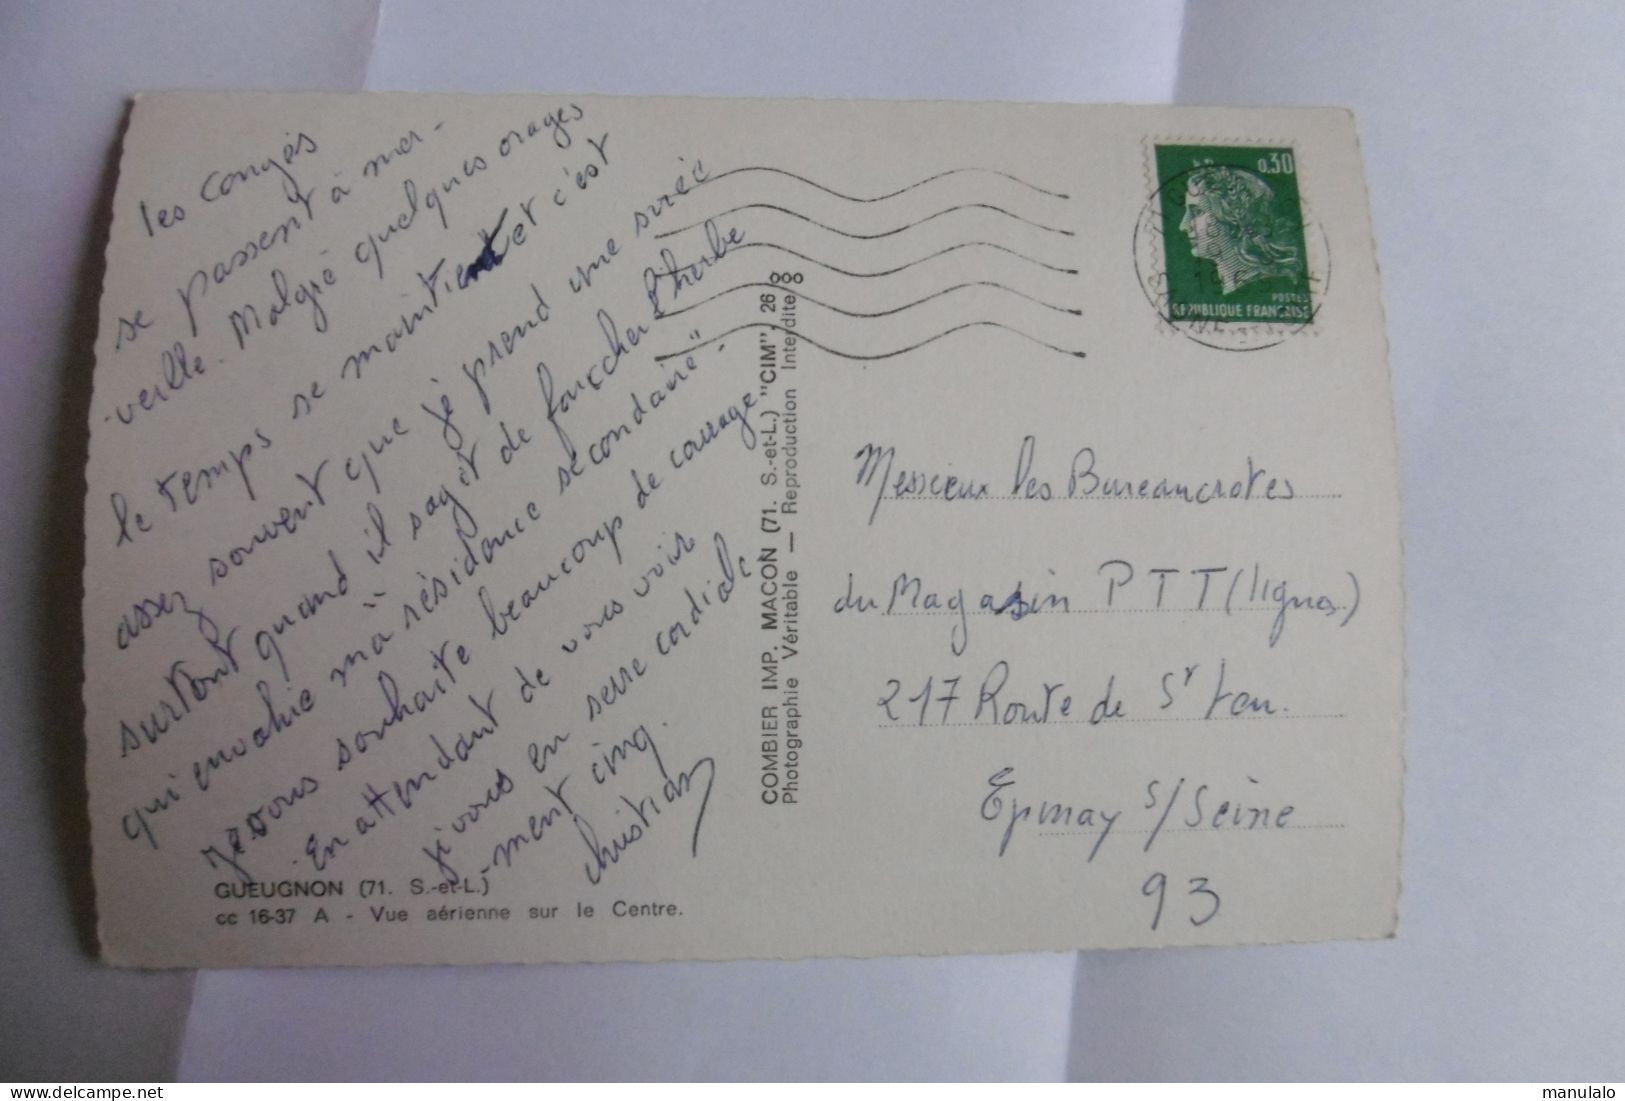 les congés
se passent à mer-
veille. Malgré quelques orages
le temps se maintient et c'est
assez souvent que je prend une suée
surtout quand il sagit de faucher l'herbe
qui envahie ma "résidance secondaire".
Je vous souhaite beaucoup de courage
En attendant de vous voir
je vous en serre cordiale
-ment cinq.
Christian
GUEUGNON (71. S.-et-L.)
cc 16-37 A - Vue aérienne sur le Centre.
COMBIER IMP. MACON (71. S.-et-L.) "CIM", 26
Photographie Véritable — Reproduction Interdite
0,30
POSTES
REPUBLIQUE FRANÇAISE
Messieux les Bureaucrates
du Magasin PTT (lignes)
217 Route de St Leu.
Epinay s/Seine
93
www.delcampe.net
manulalo